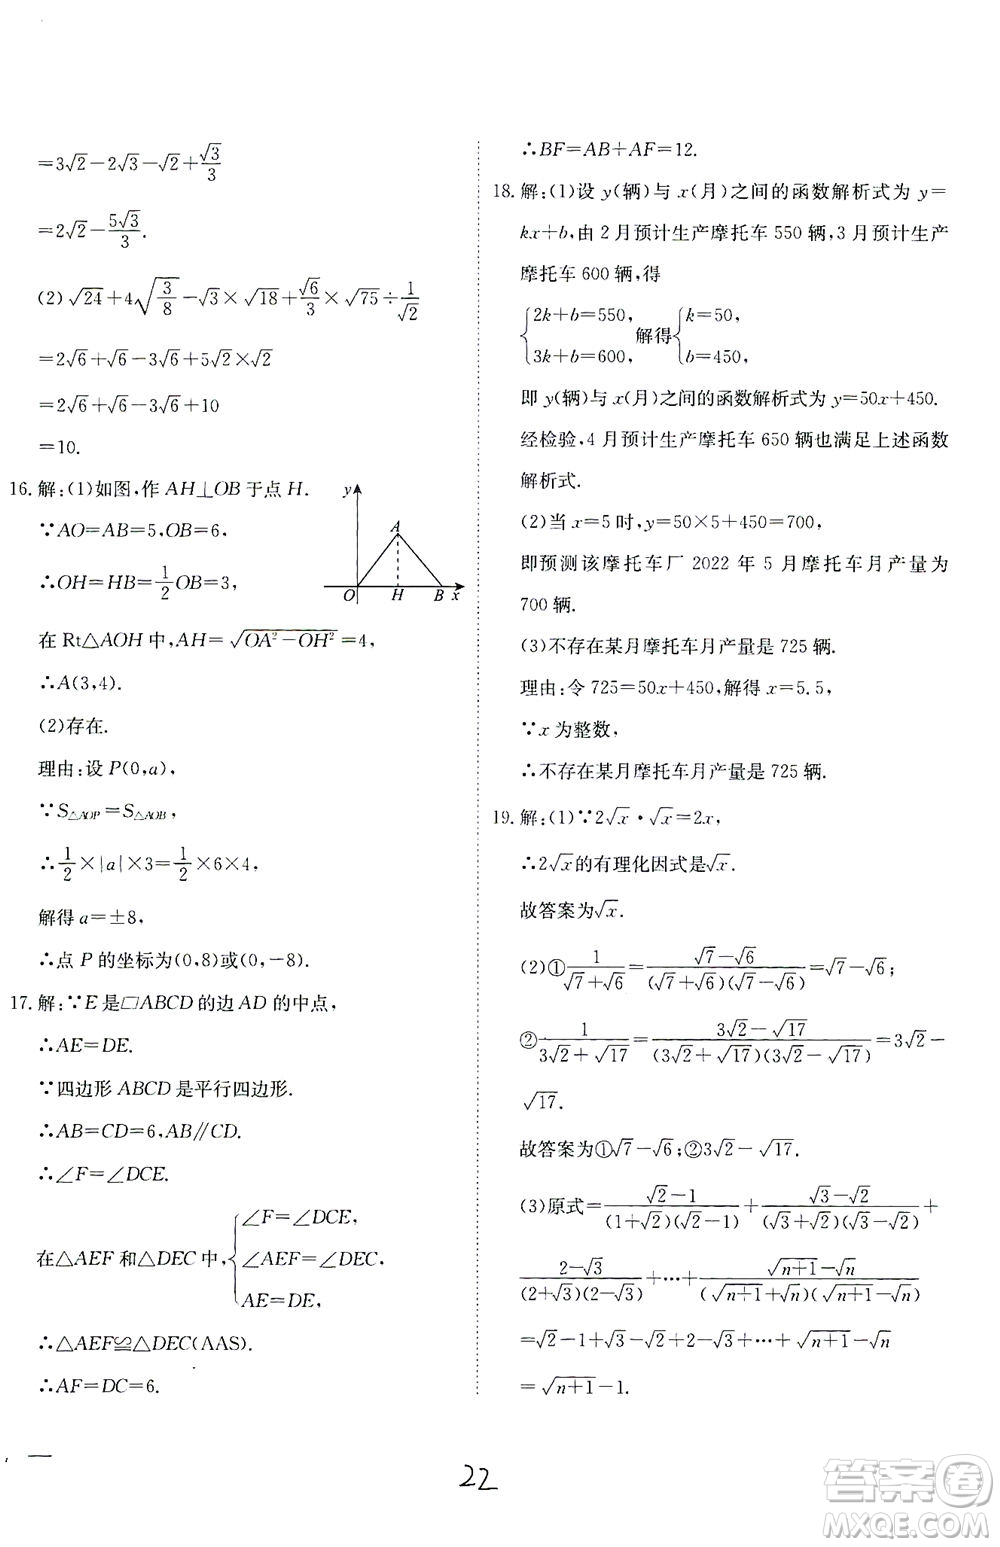 =3√2−2√3−√2+√3/3
=2√2−5√3/3.
(2)√24+4√(3/8)−√3×√18+√6/3×√75÷1/√2
=2√6+√6−3√6+5√2×√2
=2√6+√6−3√6+10
=10.
16.解:(1)如图,作 AH⊥OB 于点 H.
∵AO=AB=5,OB=6,
∴OH=HB=1/2 OB=3,
在 Rt△AOH 中,AH=√(OA²−OH²)=4,
∴A(3,4).
y
A
O H B x
(2)存在.
理由:设 P(0,a),
∵S△AOP=S△AOB,
∴1/2×|a|×3=1/2×6×4,
解得 a=±8,
∴点 P 的坐标为(0,8)或(0,−8).
17.解:∵E 是□ABCD 的边 AD 的中点,
∴AE=DE.
∵四边形 ABCD 是平行四边形.
∴AB=CD=6,AB∥CD.
∴∠F=∠DCE.
在△AEF 和△DEC 中,{∠F=∠DCE,
∠AEF=∠DEC,
AE=DE,
∴△AEF≌△DEC(AAS).
∴AF=DC=6.
∴BF=AB+AF=12.
18.解:(1)设 y(辆)与 x(月)之间的函数解析式为 y=
kx+b,由 2 月预计生产摩托车 550 辆,3 月预计生产
摩托车 600 辆,得
{2k+b=550, 3k+b=600, 解得{k=50, b=450,
即 y(辆)与 x(月)之间的函数解析式为 y=50x+450.
经检验,4 月预计生产摩托车 650 辆也满足上述函数
解析式.
(2)当 x=5 时,y=50×5+450=700,
即预测该摩托车厂 2022 年 5 月摩托车月产量为
700 辆.
(3)不存在某月摩托车月产量是 725 辆.
理由:令 725=50x+450,解得 x=5.5,
∵x 为整数,
∴不存在某月摩托车月产量是 725 辆.
19.解:(1)∵2√x·√x=2x,
∴2√x的有理化因式是√x.
故答案为√x.
(2)①1/(√7+√6)=(√7−√6)/((√7+√6)(√7−√6))=√7−√6;
②1/(3√2+√17)=(3√2−√17)/((3√2+√17)(3√2−√17))=3√2−
√17.
故答案为①√7−√6;②3√2−√17.
(3)原式=(√2−1)/((1+√2)(√2−1))+(√3−√2)/((√3+√2)(√3−√2))+
(2−√3)/((2+√3)(2−√3))+⋯+(√(n+1)−√n)/((√(n+1)+√n)(√(n+1)−√n))
=√2−1+√3−√2+2−√3+⋯+√(n+1)−√n
=√(n+1)−1.
22
答案卷
MXQE.COM